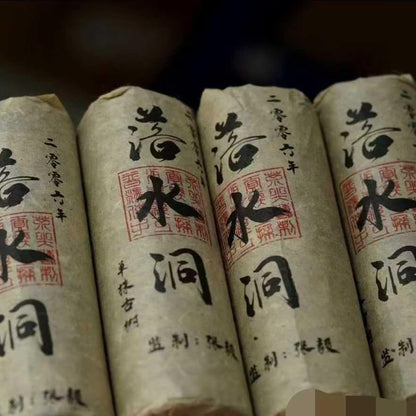 二零零六年
落水洞
监制:张毅
落水洞
单株古树
监制:张毅
二零零六年
落水洞
监制:张毅
落水洞